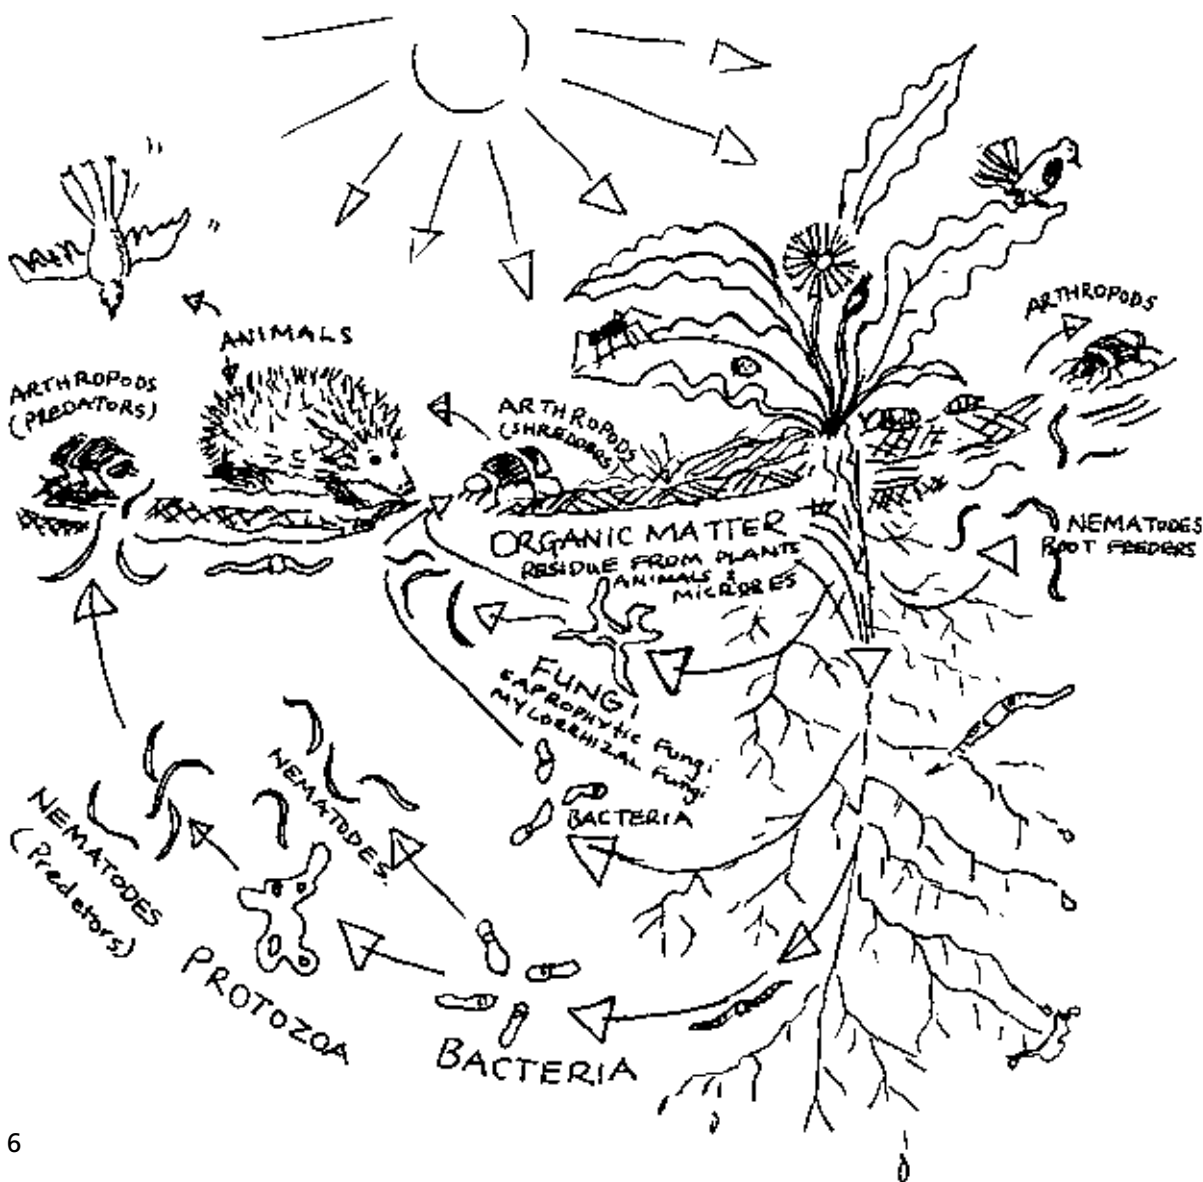 ANIMALS
ARTHROPODS
(PREDATORS)
ARTHROPODS
(SHREDDERS)
ARTHROPODS
ORGANIC MATTER
RESIDUE FROM PLANTS
ANIMALS &
MICROBES
NEMATODES
ROOT FEEDERS
FUNGI
SAPROPHYTIC Fungi
MYLORRHIZAL Fungi
BACTERIA
NEMATODES
NEMATODES
(Predators)
PROTOZOA
BACTERIA
6